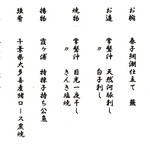 お椀 春子鯛潮仕立て 蕨
お造 常磐沖 天然河豚刺し
〃 白子刺し
焼物 常磐沖 目光一夜干し
〃 きんき塩焼
揚物 霞ヶ浦 特稚子持ち公魚
強肴 千葉県大多喜産猪ロース炭焼